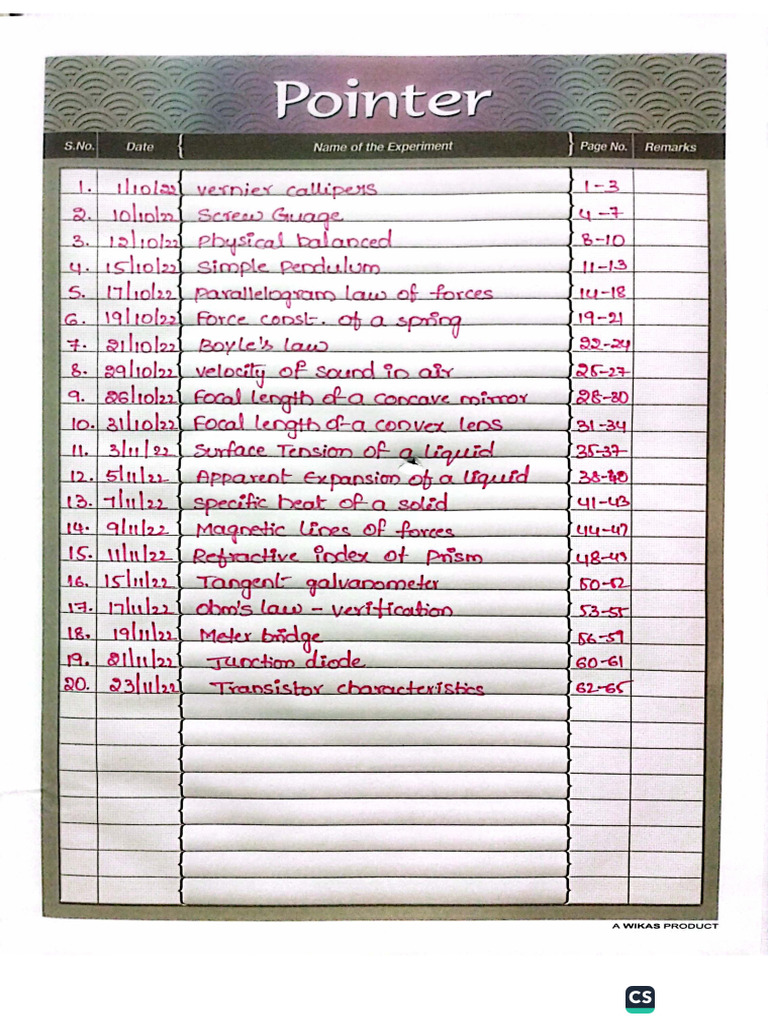 Pointer
S.No. Date Name of the Experiment Page No. Remarks
1. 1/10/22 vernier callipers 1-3
2. 10/10/22 Screw Guage 4-7
3. 12/10/22 Physical balanced 8-10
4. 15/10/22 Simple Pendulum 11-13
5. 17/10/22 Parallelogram law of forces 14-18
6. 19/10/22 Force const. of a spring 19-21
7. 21/10/22 Boyle's law 22-24
8. 29/10/22 velocity of sound in air 25-27
9. 26/10/22 Focal length of a concave mirror 28-30
10. 31/10/22 Focal length of a convex lens 31-34
11. 3/11/22 Surface Tension of a liquid 35-37
12. 5/11/22 Apparent Expansion of a liquid 38-40
13. 7/11/22 specific heat of a solid 41-43
14. 9/11/22 Magnetic lines of forces 44-47
15. 11/11/22 Refractive index of Prism 48-49
16. 15/11/22 Tangent galvanometer 50-52
17. 17/11/22 ohm's law - verification 53-55
18. 19/11/22 Meter bridge 56-59
19. 21/11/22 Junction diode 60-61
20. 23/11/22 Transistor characteristics 62-65
A WIKAS PRODUCT
CS